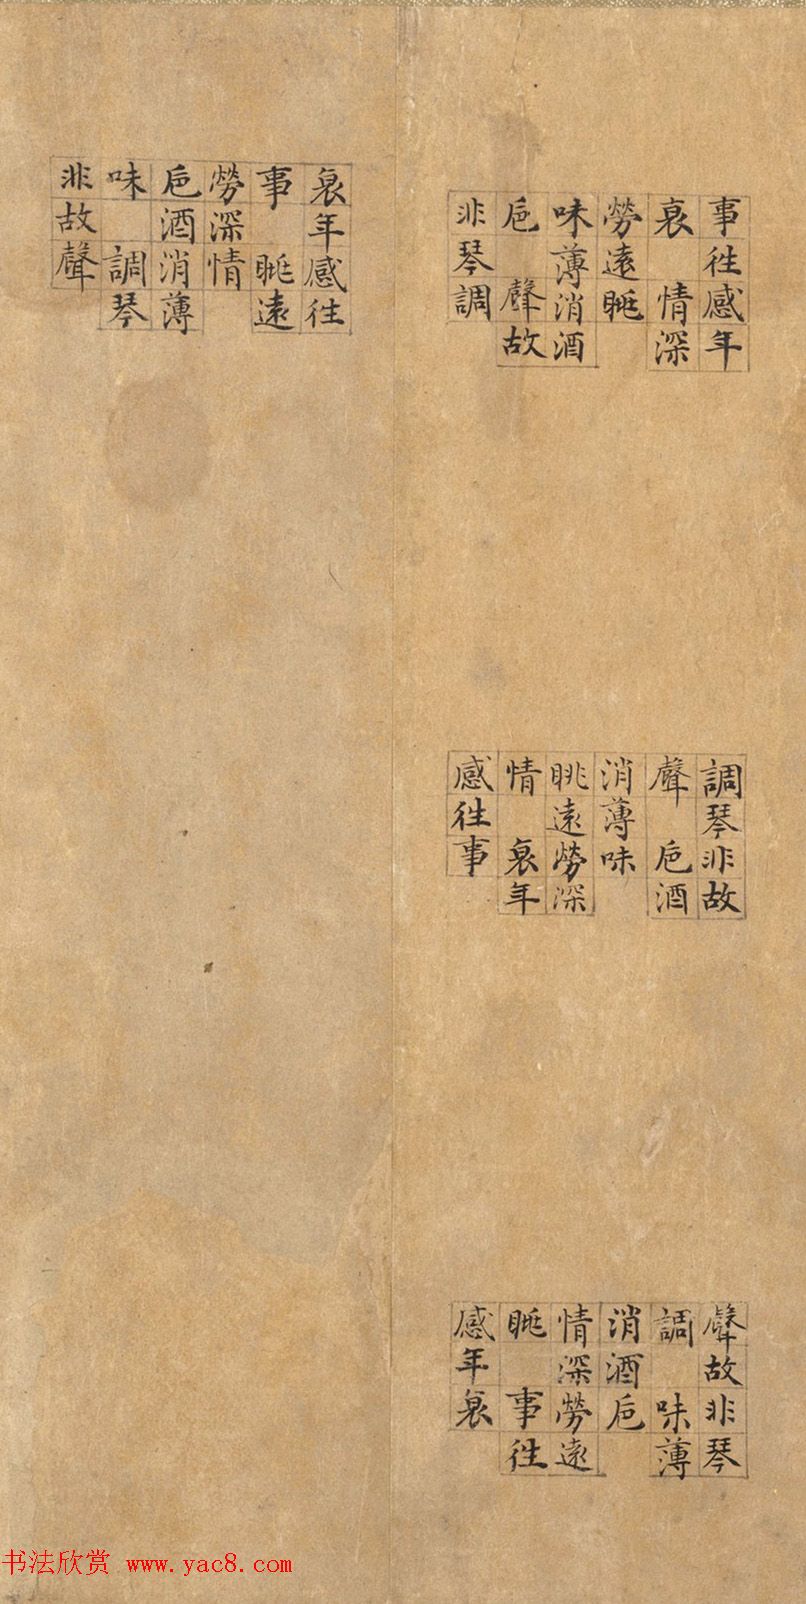 事徃感年
哀 情深
勞遠眺
味薄消酒
卮 聲故
非琴調
調琴非故
聲 卮酒
消薄味
眺遠勞深
情 哀年
感徃事
聲故非琴
調 味薄
消酒卮
情深勞遠
眺 事徃
感年哀
哀年感徃
事 眺遠
勞深情
卮酒消薄
味 調琴
非故聲
书法欣赏 www.yac8.com